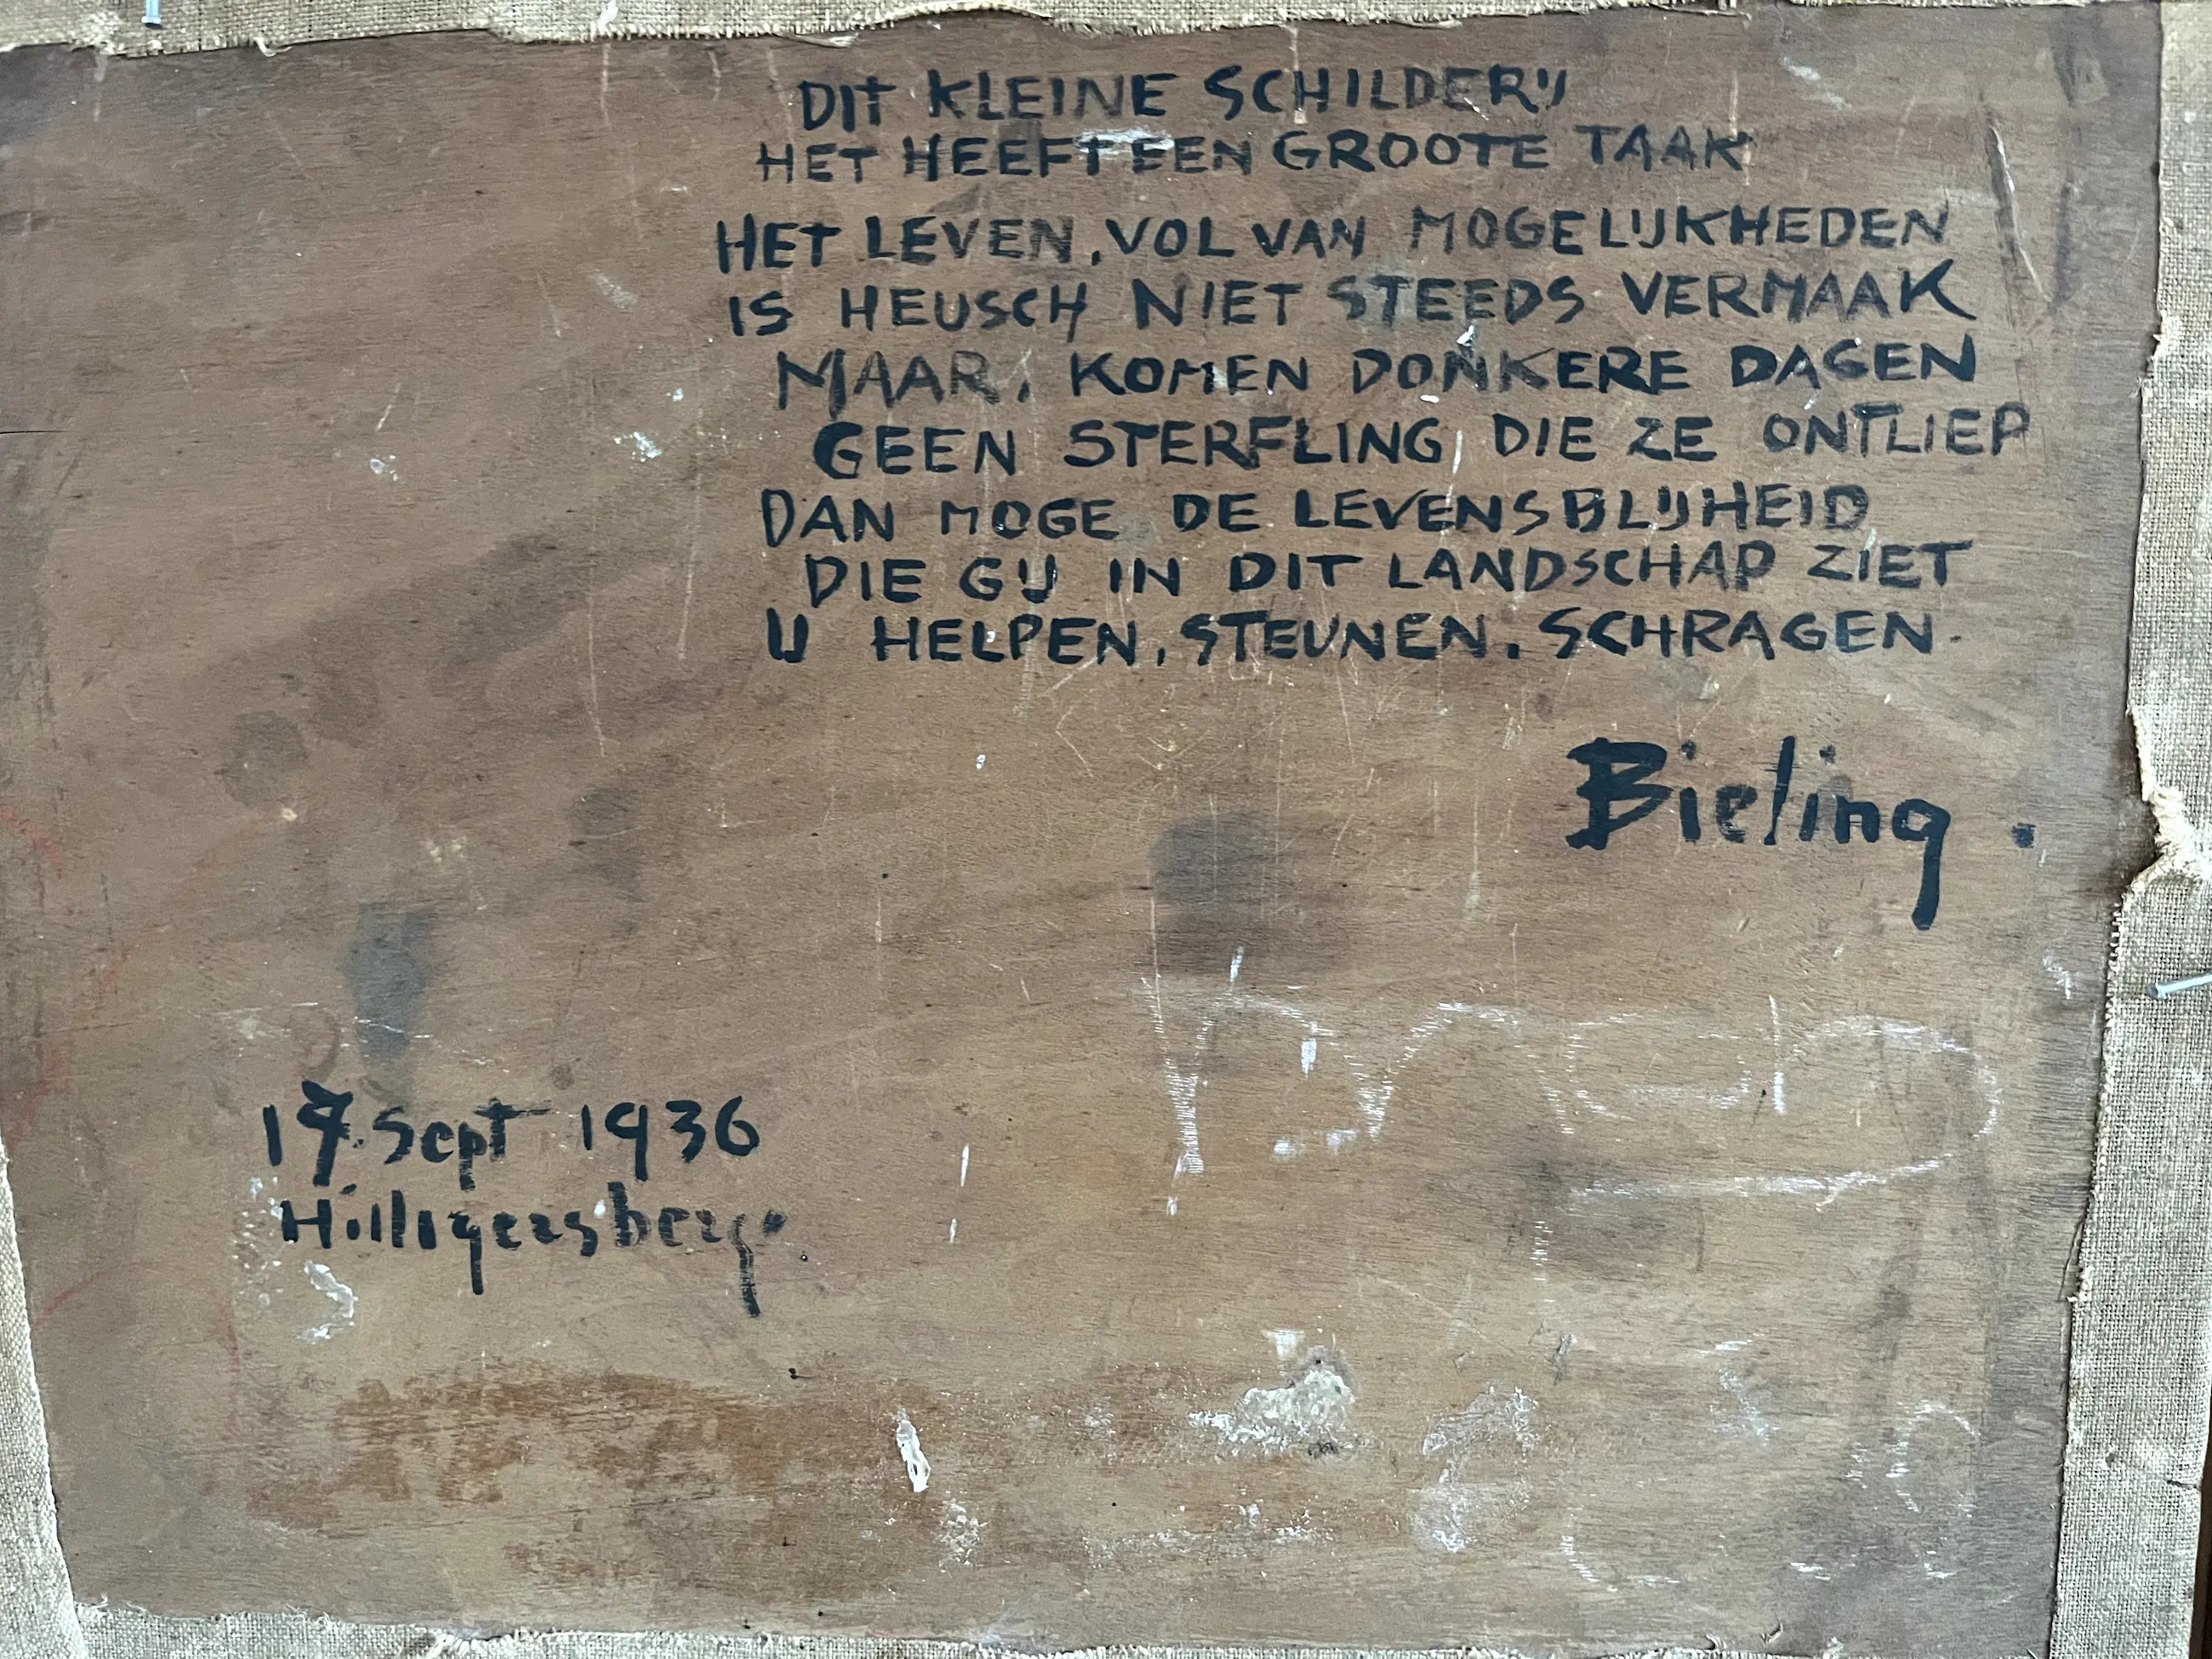 DIT KLEINE SCHILDERIJ
HET HEEFT EEN GROOTE TAAK
HET LEVEN, VOL VAN MOGELIJKHEDEN
IS HEUSCH NIET STEEDS VERMAAK
MAAR, KOMEN DONKERE DAGEN
GEEN STERFLING DIE ZE ONTLIEP
DAN MOGE DE LEVENSBLIJHEID
DIE GIJ IN DIT LANDSCHAP ZIET
U HELPEN, STEUNEN, SCHRAGEN.
Bieling.
17 Sept 1936
Hilligersberg.